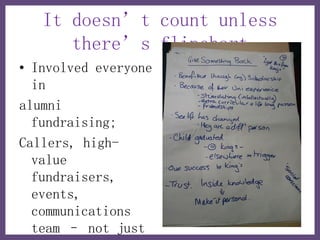 It doesn’t count unless
there’s flipchart
• Involved everyone
in
alumni
fundraising;
Callers, high-
value
fundraisers,
events,
communications
team – not just
Give Something Back
- Benefitted through (eg) Scholarship
- Because of their Uni experience
- Stimulating (intellectually)
- extra curricular
- friendships
- See life has changed
- They are a diff person
- Child graduated
- King's -
- elsewhere → trigger
- Our success is King's
- Trust. Inside knowledge
Make it personal.